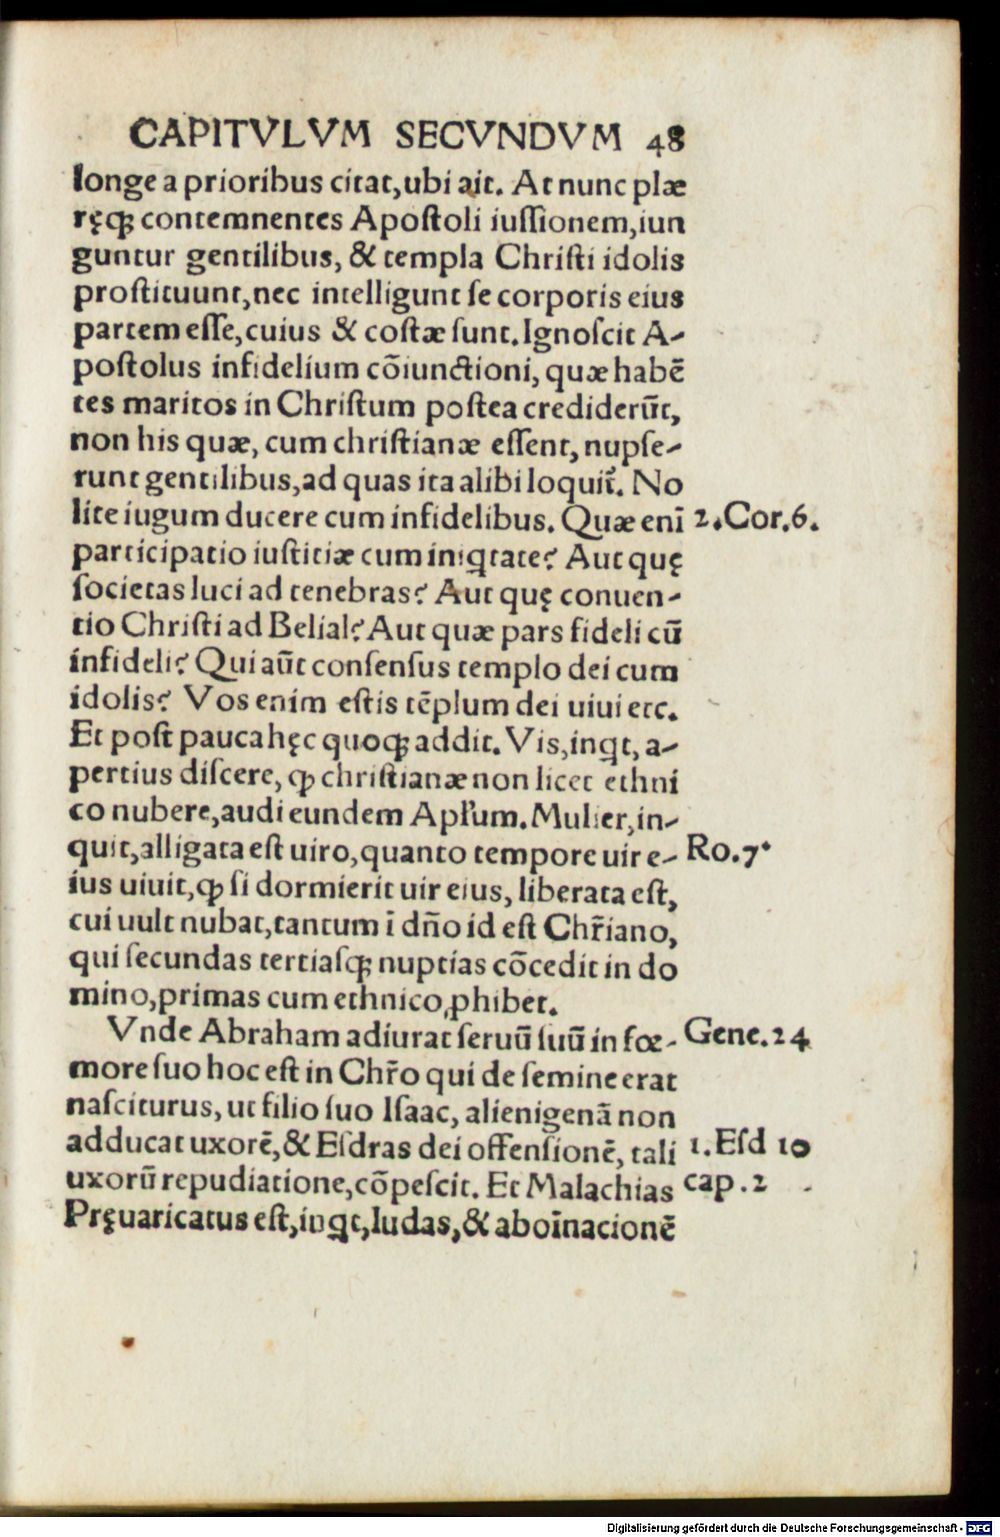 CAPITVLVM SECVNDVM 48
longe a prioribus citat,ubi ait. At nunc plæ
ręq; contemnentes Apoſtoli iuſſionem,iun
guntur gentilibus, & templa Chriſti idolis
proſtituunt,nec intelligunt ſe corporis eius
partem eſſe,cuius & coſtæ ſunt.Ignoſcit A-
poſtolus infidelium cōiunctioni, quæ habē
tes maritos in Chriſtum poſtea crediderūt,
non his quæ, cum chriſtianæ eſſent, nupſe-
runt gentilibus,ad quas ita alibi loquit᷑. No
lite iugum ducere cum infidelibus. Quæ enī 2.Cor.6.
participatio iuſtitiæ cum iniqtate? Aut quę
ſocietas luci ad tenebras? Aut quę conuen-
tio Chriſti ad Belial? Aut quæ pars fideli cū
infideli? Qui aūt conſenſus templo dei cum
idolis? Vos enim eſtis tēplum dei uiui etc.
Et poſt pauca hęc quoq; addit. Vis,inqt, a-
pertius diſcere, ꝙ chriſtianæ non licet ethni
co nubere,audi eundem Apłum. Mulier,in-
quit,alligata eſt uiro,quanto tempore uir e- Ro.7.
ius uiuit,ꝙ ſi dormierit uir eius, liberata eſt,
cui uult nubat,tantum ī dño id eſt Chr̃iano,
qui ſecundas tertiaſq; nuptias cōcedit in do
mino,primas cum ethnico ꝓhibet.
Vnde Abraham adiurat ſeruū ſuū in fœ- Gene.24
more ſuo hoc eſt in Chr̃o qui de ſemine erat
naſciturus, ut filio ſuo Iſaac, alienigenā non
adducat uxorē,& Eſdras dei offenſionē, tali 1.Eſd 10
uxorū repudiatione,cōpeſcit. Et Malachias cap.2
Pręuaricatus eſt,inqt,Iudas,& aboīnacionē
Digitalisierung gefördert durch die Deutsche Forschungsgemeinschaft - DFG